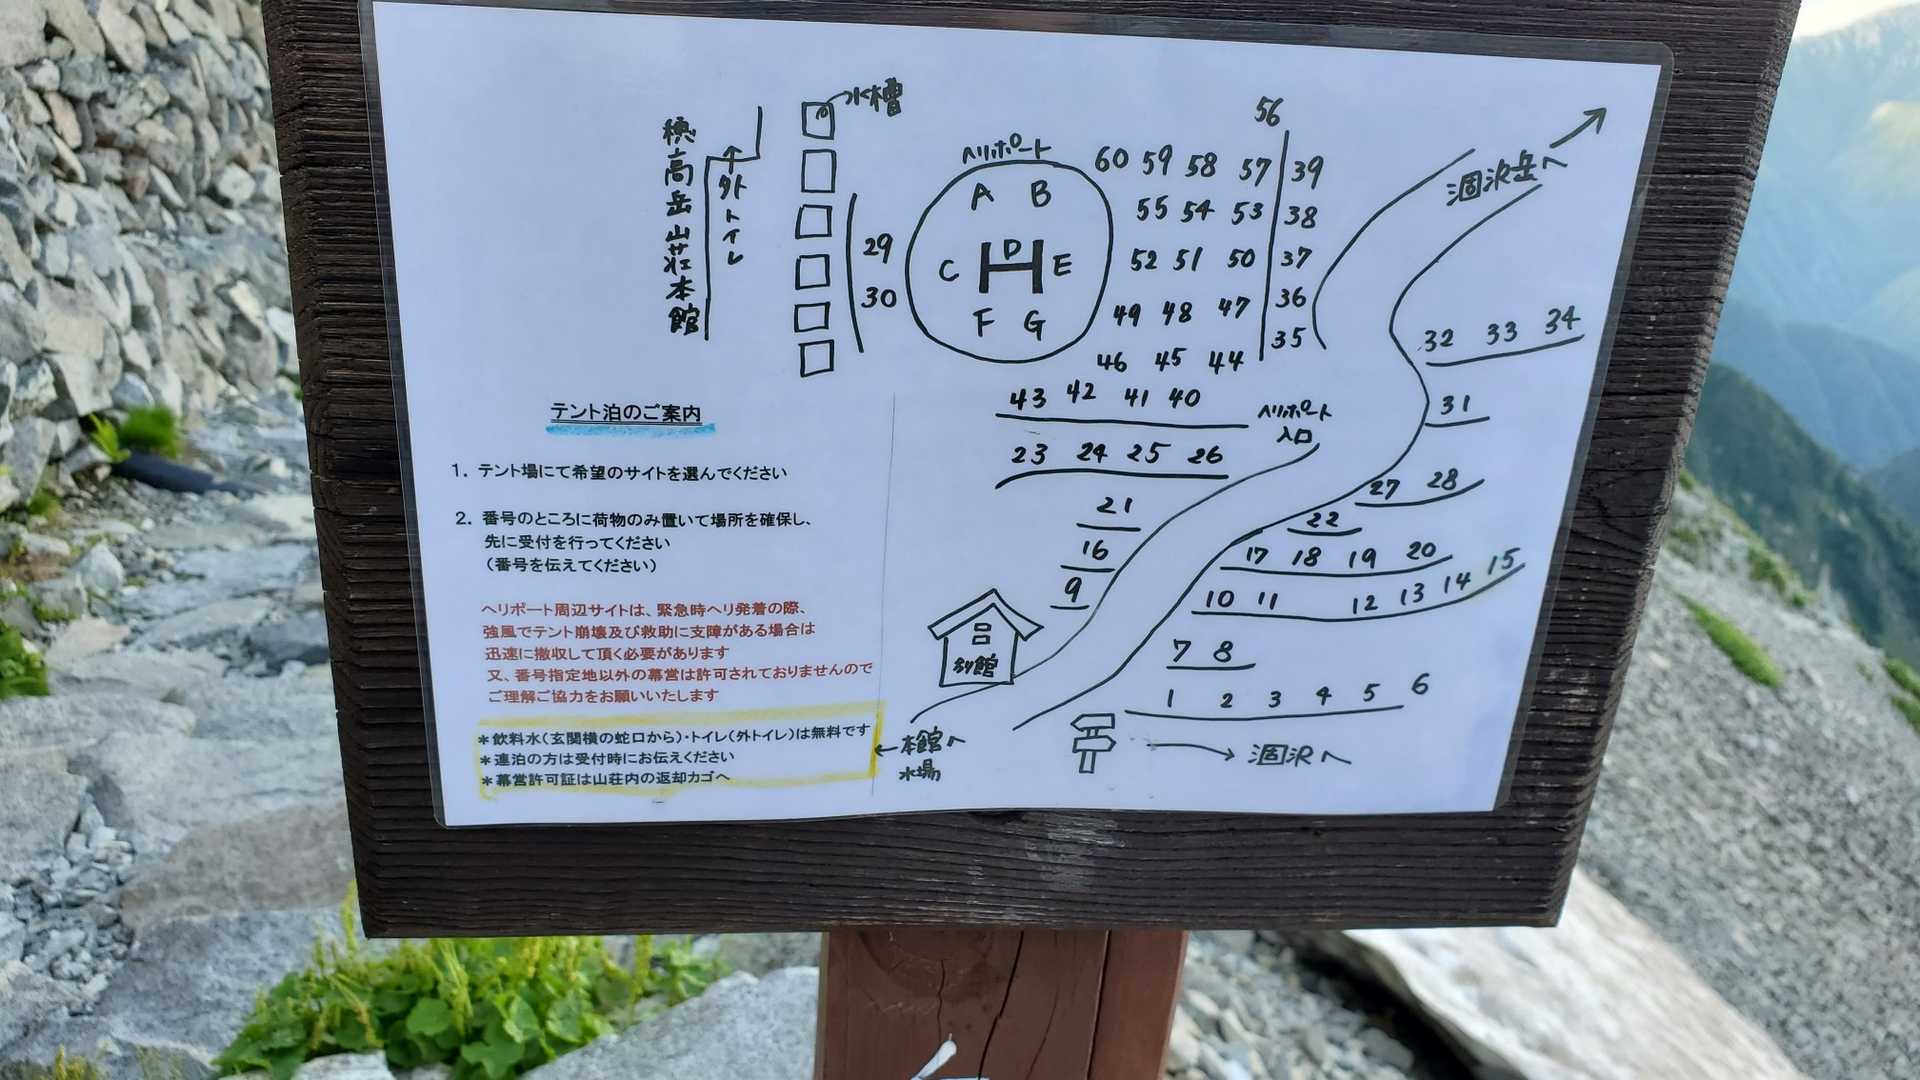 水槽
穂高岳山荘本館
↑外トイレ
ヘリポート
A B
C D E
H
F G
29
30
56
60 59 58 57 39
55 54 53 38
52 51 50 37
49 48 47 36
46 45 44 35
43 42 41 40
涸沢岳へ
32 33 34
31
ヘリポート
入口
23 24 25 26
27 28
21
22
16
17 18 19 20
9
10 11 12 13 14 15
別館
7 8
1 2 3 4 5 6
←本館へ
水場
→ 涸沢へ
テント泊のご案内
1. テント場にて希望のサイトを選んでください
2. 番号のところに荷物のみ置いて場所を確保し、
先に受付を行ってください
(番号を伝えてください)
ヘリポート周辺サイトは、緊急時ヘリ発着の際、
強風でテント崩壊及び救助に支障がある場合は
迅速に撤収して頂く必要があります
又、番号指定地以外の幕営は許可されておりませんので
ご理解ご協力をお願いいたします
*飲料水(玄関横の蛇口から)・トイレ(外トイレ)は無料です
*連泊の方は受付時にお伝えください
*幕営許可証は山荘内の返却カゴへ